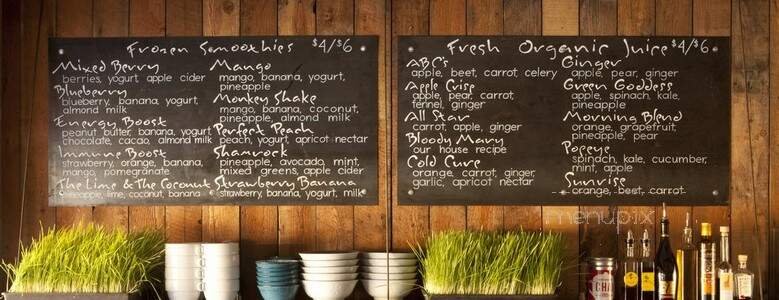 Frozen Smoothies $4/$6
Mixed Berry
berries, yogurt, apple cider
Blueberry
blueberry, banana, yogurt,
almond milk
Energy Boost
peanut butter, banana, yogurt
chocolate, cacao, almond milk
Immune Boost
strawberry, orange, banana,
mango, pomegranate
The Lime & The Coconut
lime, coconut, banana
Mango
mango, banana, yogurt,
pineapple
Monkey Shake
mango, banana, coconut,
pineapple, almond milk
Perfect Peach
peach, yogurt, apricot nectar
Shamrock
pineapple, avocado, mint,
mixed greens, apple cider
Strawberry Banana
strawberry, banana, yogurt, milk
Fresh Organic Juice $4/$6
ABC's
apple, beet, carrot, celery
Apple Crisp
apple, pear, carrot,
fennel, ginger
All Star
carrot, apple, ginger
Bloody Mary
our house recipe
Cold Cure
orange, carrot, ginger,
garlic, apricot nectar
Ginger
apple, pear, ginger
Green Goddess
apple, spinach, kale,
pineapple
Morning Blend
orange, grapefruit,
pineapple, pear
Popeye
spinach, kale, cucumber,
mint, apple
Sunrise
orange, beet, carrot
menupix